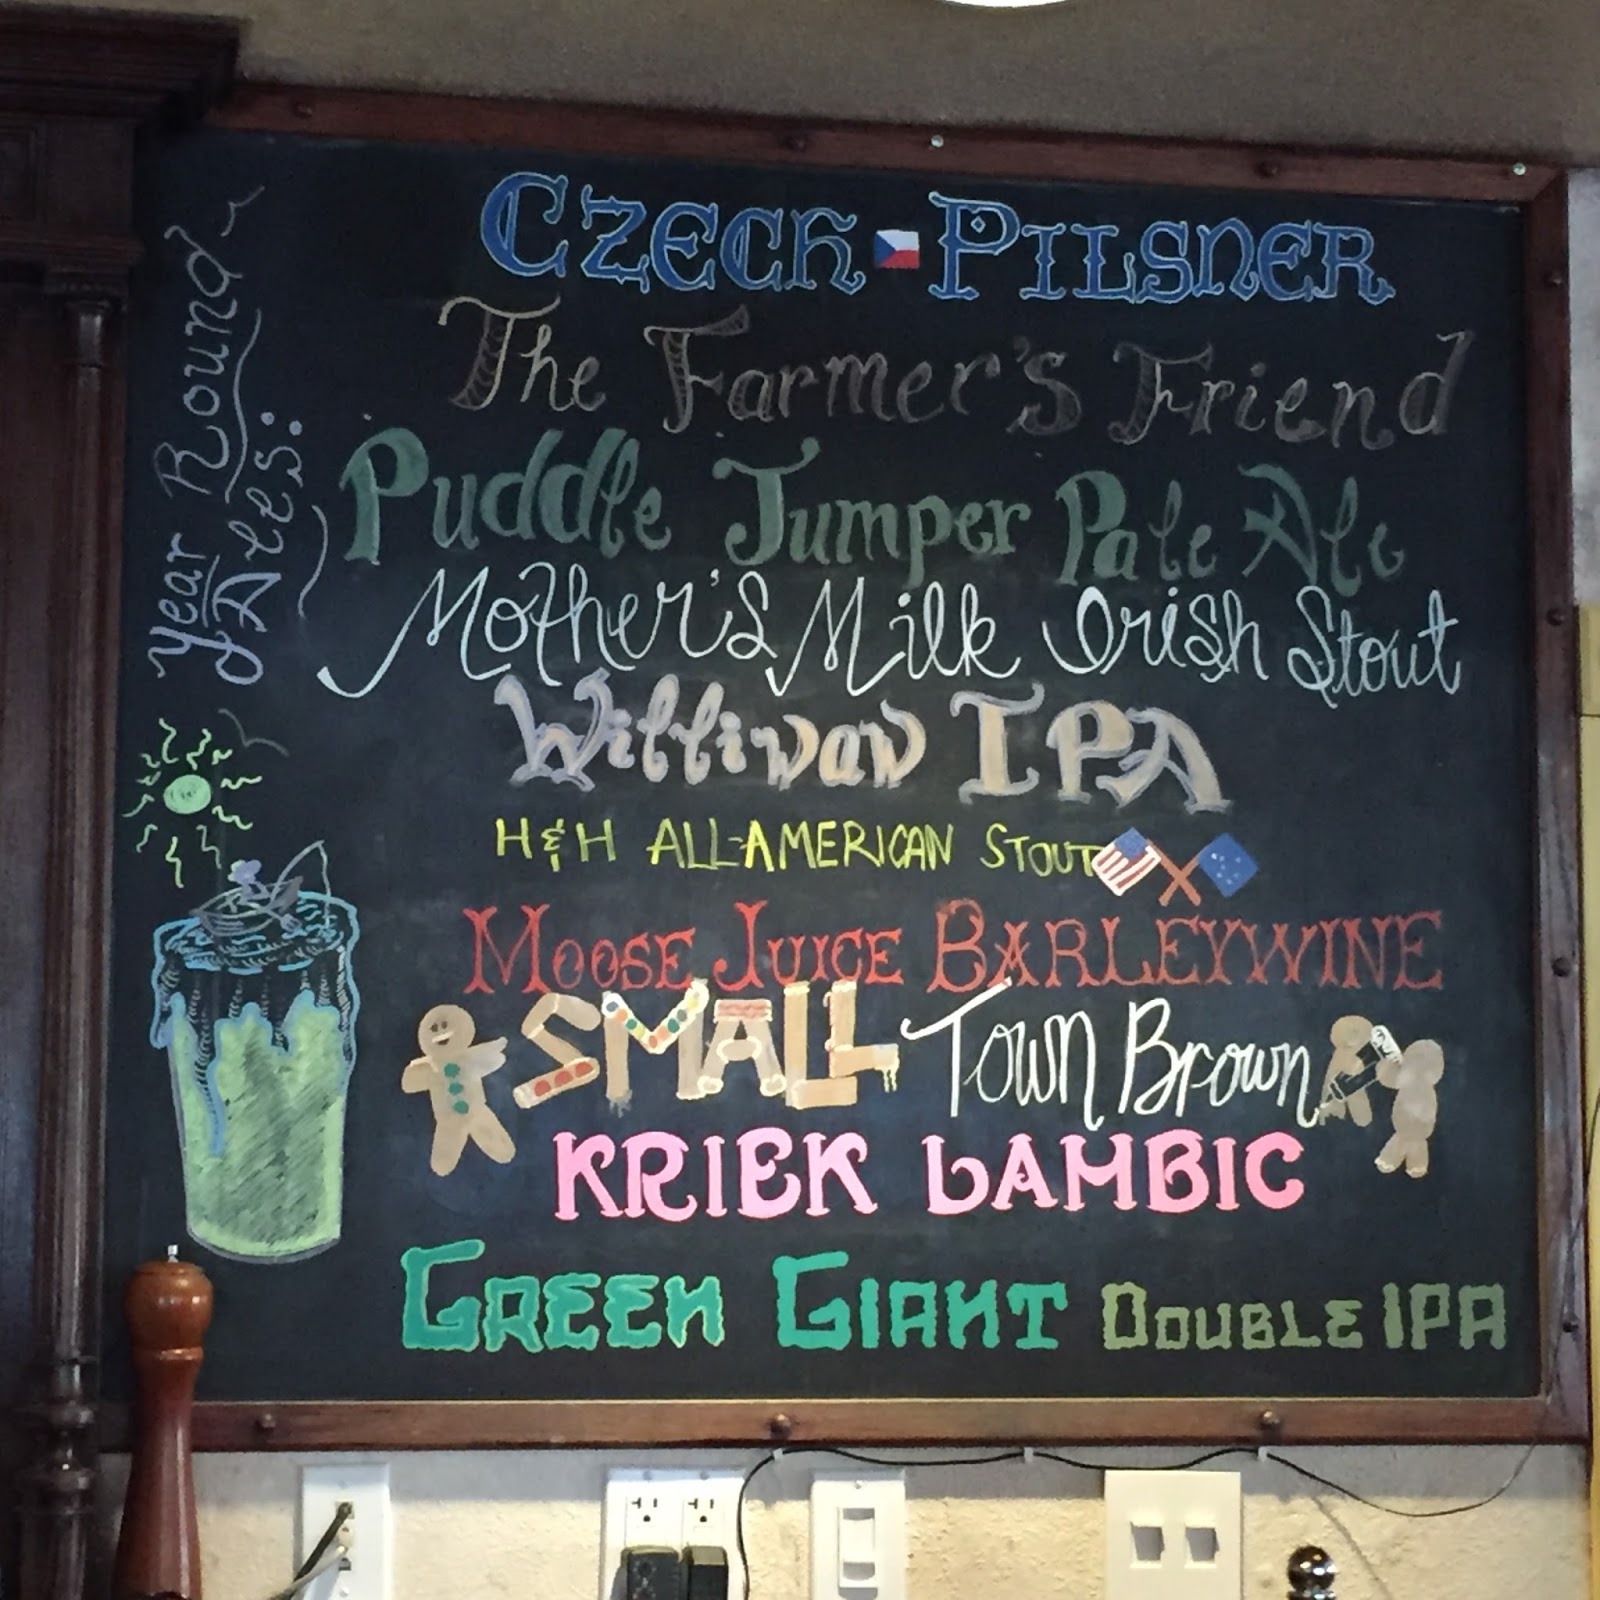 Year Round
Ales:
Czech Pilsner
The Farmer's Friend
Puddle Jumper Pale Ale
Mother's Milk Irish Stout
Williwaw IPA
H & H ALL-AMERICAN STOUT
MOOSE JUICE BARLEYWINE
SMALL Town Brown
KRIEK LAMBIC
GREEN GIANT DOUBLE IPA